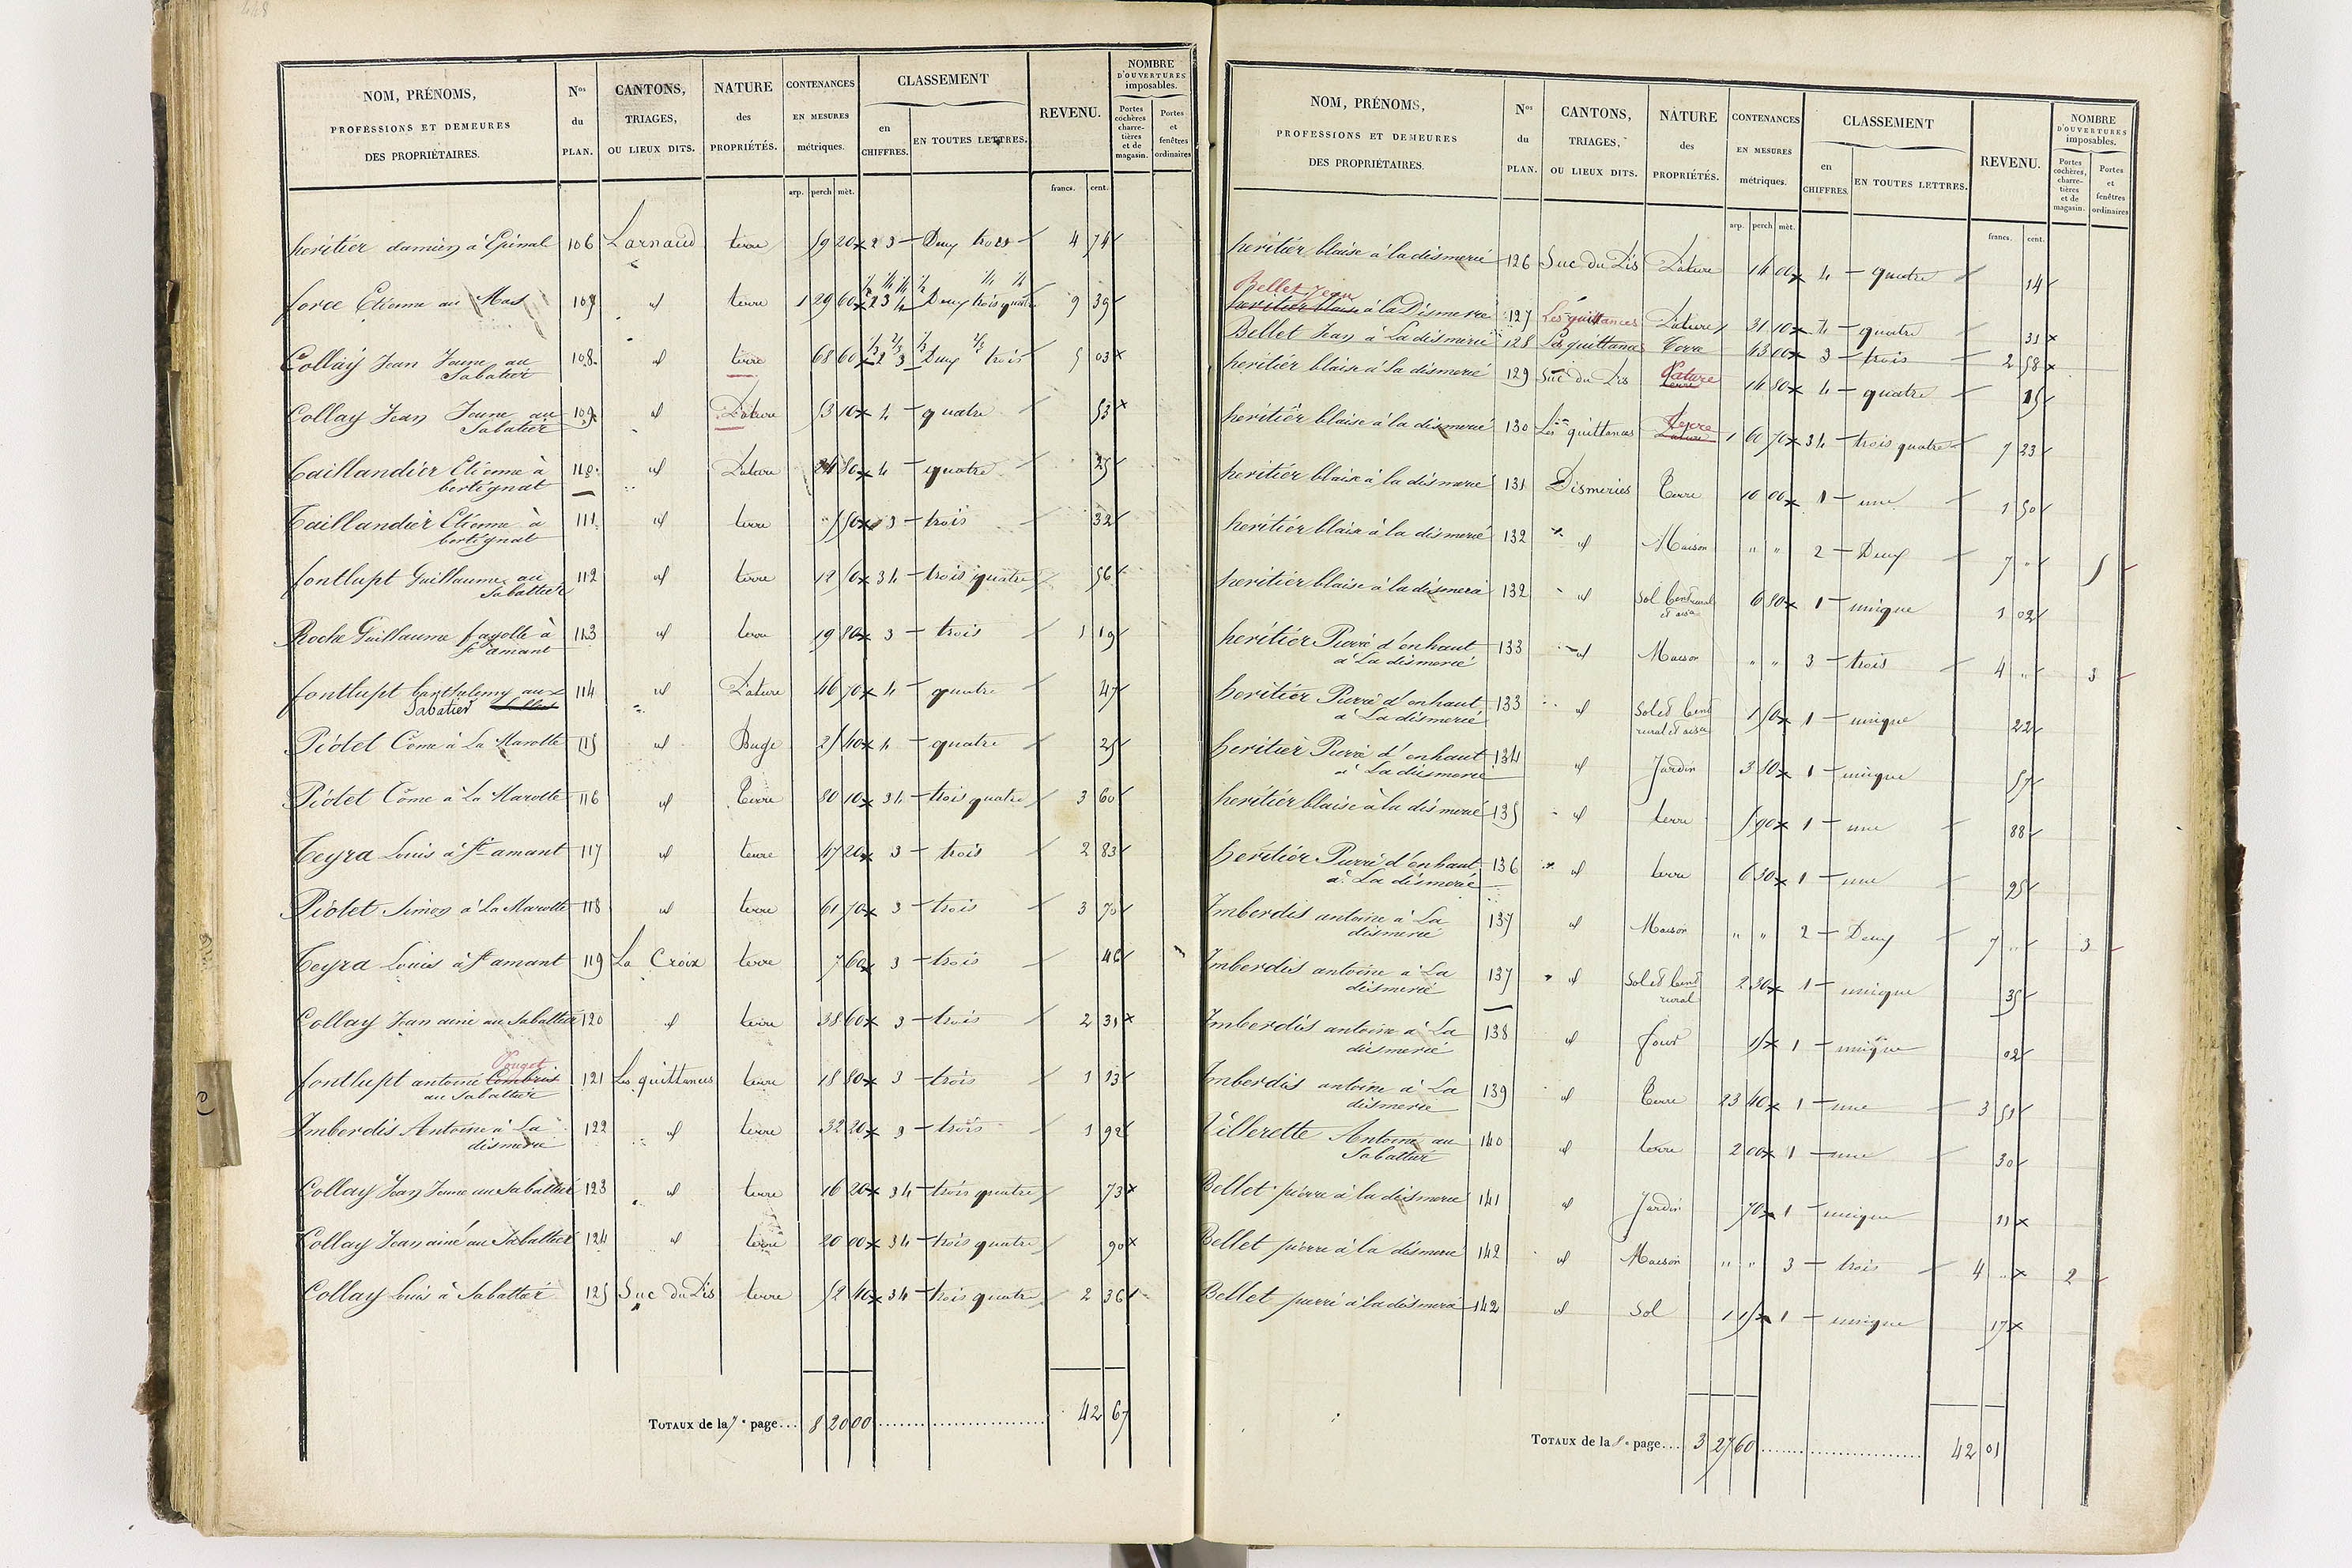 448
NOM, PRÉNOMS, PROFESSIONS ET DEMEURES DES PROPRIÉTAIRES. Nos du PLAN. CANTONS, TRIAGES, OU LIEUX DITS. NATURE des PROPRIÉTÉS. CONTENANCES EN MESURES métriques. CLASSEMENT en CHIFFRES. EN TOUTES LETTRES. REVENU. NOMBRE D'OUVERTURES imposables. Portes cochères charretières et de magasin. Portes et fenêtres ordinaires
arp. perch mèt. francs. cent.
heritier damien à Epinal 106 Larnaud terre 79 20 2 3 Deux trois 4 74
force Etienne au Mas 107 id terre 1 29 60 1/2 1/4 1/4 2 3 4 1/2 1/4 1/4 Deux trois quatre 9 39
Collay Jean Jeune au Sabatier 108 id terre 68 60 1/3 2/3 2 3 1/3 2/3 Deux trois 5 03
Collay Jean Jeune au Sabatier 109 id Pature 53 10 4 quatre 53
Taillandier Etienne à bertignat 110 id Pature 24 80 4 quatre 25
Taillandier Etienne à bertignat 111 id terre 5 50 3 trois 32
fontlupt Guillaume au Sabattier 112 id terre 12 50 3 4 trois quatre 56
Roche Guillaume fayolle à St amant 113 id terre 19 80 3 trois 1 19
fontlupt barthelemy aux Sabatier 114 id Pature 46 70 4 quatre 47
Piôtet Côme à La Marotte 115 id Buge 25 40 4 quatre 25
Piôtet Côme à La Marotte 116 id Terre 80 10 3 4 trois quatre 3 60
Teyra Louis à St amant 117 id terre 47 20 3 trois 2 83
Piôtet Simon à La Marotte 118 id terre 61 70 3 trois 3 70
Teyra Louis à St amant 119 La Croix terre 7 60 3 trois 46
Collay Jean ainé au Sabattier 120 id terre 38 60 3 trois 2 31
Pouget
fontlupt antoine Combris au Sabattier 121 Les quittances terre 18 80 3 trois 1 13
Imberdis Antoine à La dismerie 122 id terre 32 20 3 trois 1 92
Collay Jean Jeune au Sabattier 123 id terre 16 20 3 4 trois quatre 73
Collay Jean ainé au Sabattier 124 id terre 20 00 3 4 trois quatre 90
Collay Louis à Sabattier 125 Suc du Lis terre 52 40 3 4 trois quatre 2 36
TOTAUX de la 7e page.... 8 20 00 42 67
NOM, PRÉNOMS, PROFESSIONS ET DEMEURES DES PROPRIÉTAIRES. Nos du PLAN. CANTONS, TRIAGES, OU LIEUX DITS. NATURE des PROPRIÉTÉS. CONTENANCES EN MESURES métriques. CLASSEMENT en CHIFFRES. EN TOUTES LETTRES. REVENU. NOMBRE D'OUVERTURES imposables. Portes cochères, charretières et de magasin. Portes et fenêtres ordinaires
arp. perch mèt. francs. cent.
heritiér blaise à la dismerie 126 Suc du Lis Pature 14 00 4 quatre 14
Bellet Jean
heritier blaise à la Dismerie 127 Les quittances Pature 31 10 4 quatre 31
Bellet Jean à La dismerie 128 Les quittances Terre 43 00 3 trois 2 58
heritiér blaise à la dismerié 129 Suc du Lis Pature terre 14 80 4 quatre 15
heritiér blaise à la dismerié 130 Les quittances Terre Pature 1 60 70 3 4 trois quatre 7 23
heritiér blaise à la dismerié 131 Dismeries Terre 10 00 1 une 1 50
heritiér blaise à la dismerié 132 id Maison " " 2 Deux 7 " 5
heritiér blaise à la dismerié 132 id Sol bent rural et aisa 6 80 1 unique 1 02
heritiér Pierre d'enhaut à La dismerié 133 id Maison " " 3 trois 4 " 3
heritiér Pierre d'enhaut à La dismerié 133 id Sol et bent rural et aisa 1 50 1 unique 22
heritiér Pierre d'enhaut à La dismerié 134 id Jardin 3 80 1 unique 57
heritiér blaise à la dismerié 135 id terre 5 90 1 une 88
heritiér Pierre d'enhaut à La dismerié 136 id terre 6 30 1 une 95
Imberdis antoine à La dismerié 137 id Maison " " 2 Deux 7 " 3
Imberdis antoine à La dismerié 137 id Sol et bent rural 2 30 1 unique 35
Imberdis antoine à La dismerié 138 id four 15 1 unique 02
Imberdis antoine à La dismerie 139 id Terre 23 40 1 une 3 51
Villerette Antoine au Sabattier 140 id terre 2 00 1 une 30
Bellet pierre à la dismerie 141 id Jardin 70 1 unique 11
Bellet pierre à la dismerié 142 id Maison " " 3 trois 4 " 2
Bellet pierre à la dismerié 142 id Sol 1 15 1 unique 17
TOTAUX de la 8e page.... 3 27 60 42 01